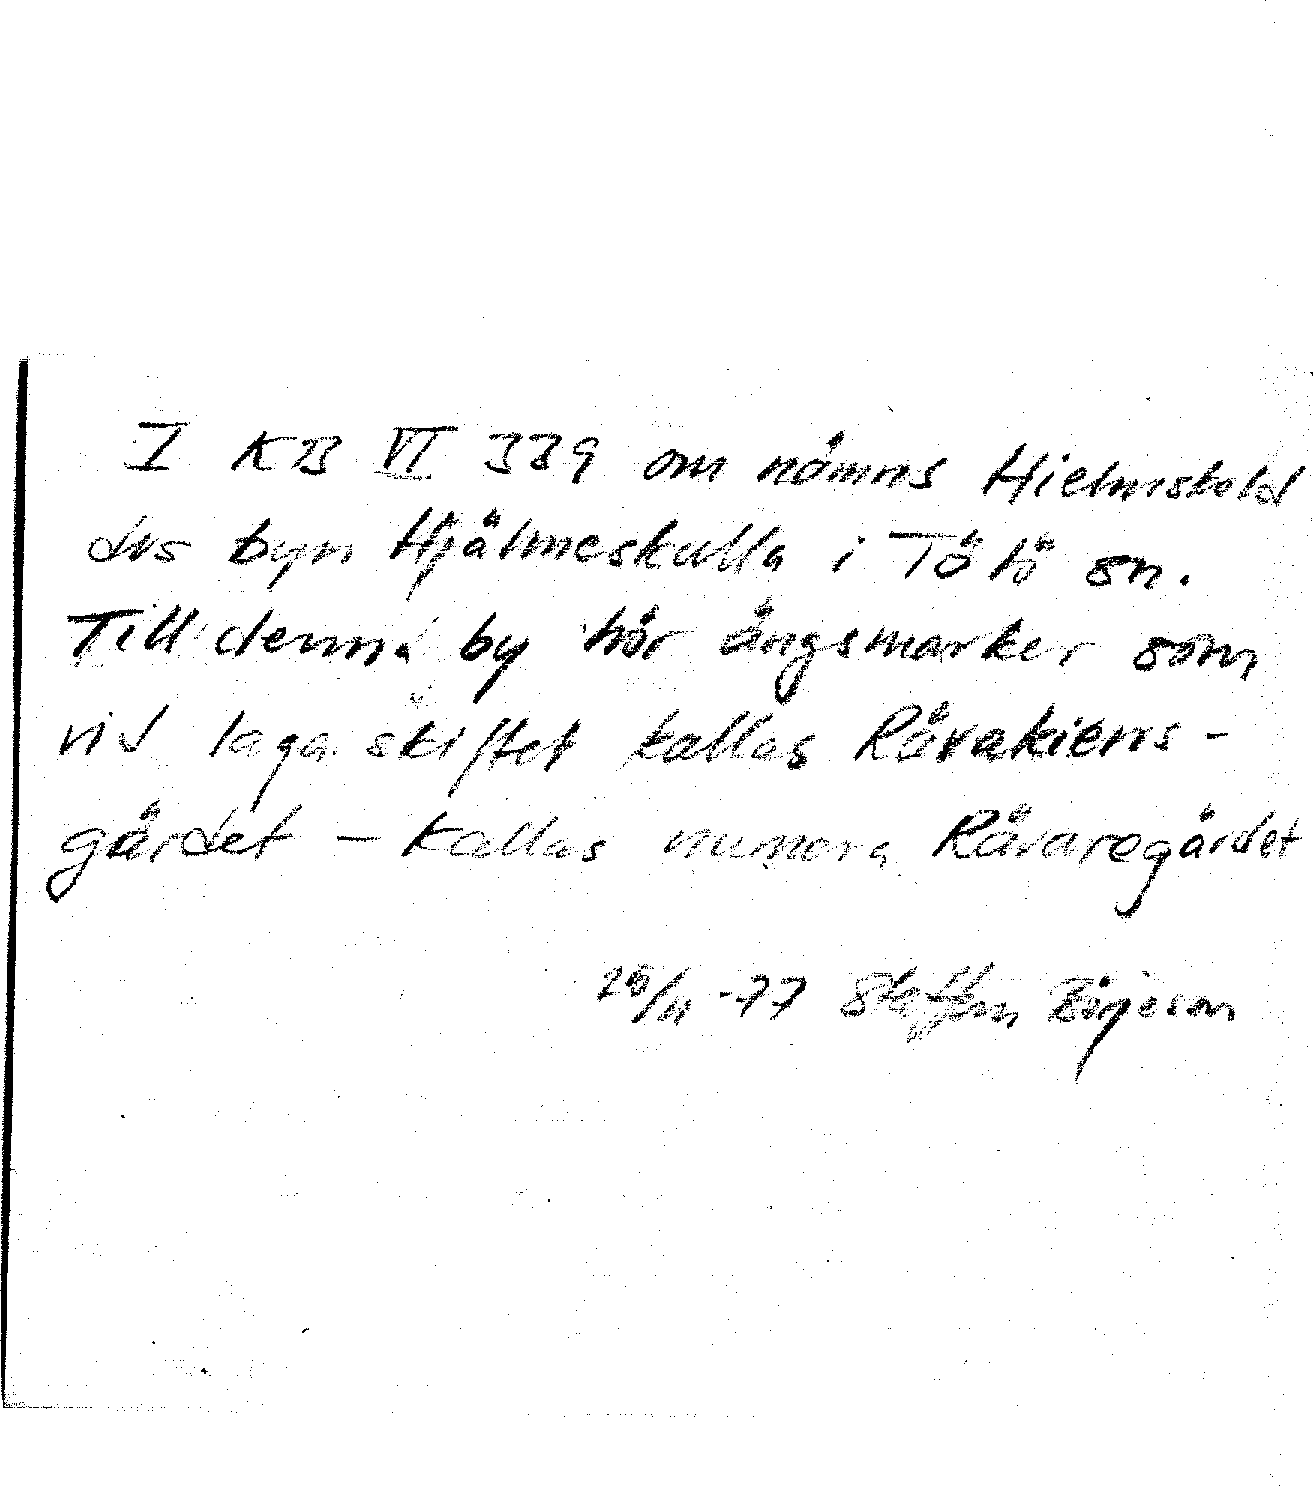 I KB VI 339 om nämns Hielmskold
dvs byn Hjälmeskulla i Tölö sn.
Till denna by hör ängsmarker som
vid laga skiftet kallas Rävakiens-
gärdet – kallas numera Rävaregärdet
/11 -77 Staffan Börjeson